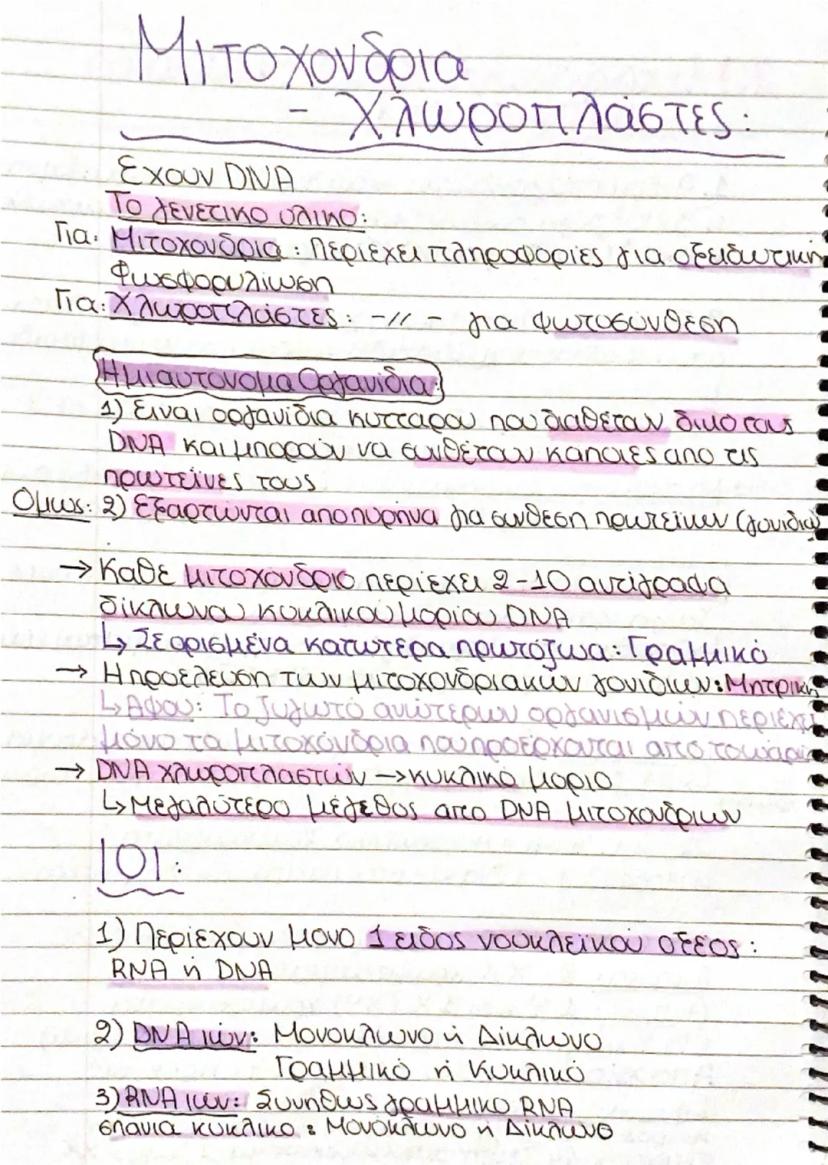 Μιτοχονδρια
- Χλωροπλάστες:
Εχουν DNA
Το γενετικο υλικο:
Για: Μιτοχονδρια: περιέχει πληροφορίες για οξειδωτική
Φωσφορυλίωση
Για: Χλωροπλάστες: -//- για φωτοσύνθεση
Ημιαυτονομα Οργανίδια:
1) Ειναι οργανίδια κυτταρου που διαθέτουν δικο τους
DNA και μπορούν να συνθέτουν καποιες απο τις
πρωτείνες τους
Ομως: 2) Εξαρτώνται απο πυρήνα για συνθεση πρωτεϊνων (γονιδια)
→ Καθε μιτοχονδριο περιέχει 2-10 αντίγραφα
δίκλωνου κυκλικου μορίου DNA
↳ Σε ορισμένα κατωτερα πρωτόζωα: Γραμμικό
→ Η προέλευση των μιτοχονδριακών γονιδιων: Μητρική
↳ Αφου: Το ζυγωτό ανώτερων οργανισμών περιέχει
μόνο τα μιτοχόνδρια που προέρχονται απο το ωάριο
→ DNA χλωροπλαστών → κυκλικο μοριο
↳ Μεγαλύτερο μέγεθος απο DNA μιτοχονδριων
ΙΟΙ:
1) Περιέχουν μονο 1 ειδος νουκλεϊκου οξεος:
RNA ή DNA
2) DNA ιών: Μονοκλωνο ή Δίκλωνο
Γραμμικό ή Κυκλικό
3) RNA ιων: Συνηθως γραμμικο RNA
σπανια κυκλικο: Μονόκλωνο ή Δίκλωνο